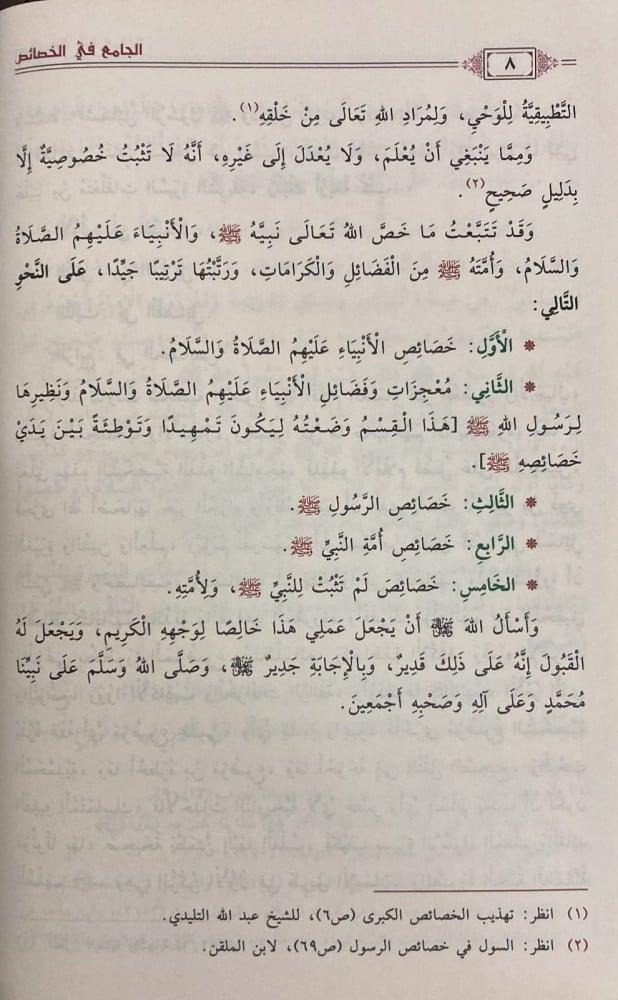 الجامع في الخصائص
٨
التَّطْبِيقِيَّةُ لِلْوَحْيِ، وَلِمُرَادِ اللهِ تَعَالَى مِنْ خَلْقِهِ(١).
وَمِمَّا يَنْبَغِي أَنْ يُعْلَمَ، وَلَا يُعْدَلَ إِلَى غَيْرِهِ، أَنَّهُ لَا تَثْبُتُ خُصُوصِيَّةٌ إِلَّا
بِدَلِيلٍ صَحِيحٍ(٢).
وَقَدْ تَتَبَّعْتُ مَا خَصَّ اللهُ تَعَالَى نَبِيَّهُ ﷺ، وَالْأَنْبِيَاءَ عَلَيْهِمُ الصَّلَاةُ
وَالسَّلَامُ، وَأُمَّتَهُ ﷺ مِنَ الْفَضَائِلِ وَالْكَرَامَاتِ، وَرَتَّبْتُهَا تَرْتِيبًا جَيِّدًا، عَلَى النَّحْوِ
التَّالِي:
* الْأَوَّلِ: خَصَائِصِ الْأَنْبِيَاءِ عَلَيْهِمُ الصَّلَاةُ وَالسَّلَامُ.
* الثَّانِي: مُعْجِزَاتِ وَفَضَائِلِ الْأَنْبِيَاءِ عَلَيْهِمُ الصَّلَاةُ وَالسَّلَامُ وَنَظِيرِهَا
لِرَسُولِ اللهِ ﷺ [هَذَا الْقِسْمُ وَضَعْتُهُ لِيَكُونَ تَمْهِيدًا وَتَوْطِئَةً بَيْنَ يَدَيْ
خَصَائِصِهِ ﷺ].
* الثَّالِثِ: خَصَائِصِ الرَّسُولِ ﷺ.
* الرَّابِعِ: خَصَائِصِ أُمَّةِ النَّبِيِّ ﷺ.
* الخَامِسِ: خَصَائِصَ لَمْ تَثْبُتْ لِلنَّبِيِّ ﷺ، وَلِأُمَّتِهِ.
وَأَسْأَلُ اللهَ ﷻ أَنْ يَجْعَلَ عَمَلِي هَذَا خَالِصًا لِوَجْهِهِ الْكَرِيمِ، وَيَجْعَلَ لَهُ
الْقَبُولَ إِنَّهُ عَلَى ذَلِكَ قَدِيرٌ، وَبِالْإِجَابَةِ جَدِيرٌ ﷻ، وَصَلَّى اللهُ وَسَلَّمَ عَلَى نَبِيِّنَا
مُحَمَّدٍ وَعَلَى آلِهِ وَصَحْبِهِ أَجْمَعِينَ.
(١) انظر: تهذيب الخصائص الكبرى (ص٦)، للشيخ عبد الله التليدي.
(٢) انظر: السول في خصائص الرسول (ص٦٩)، لابن الملقن.